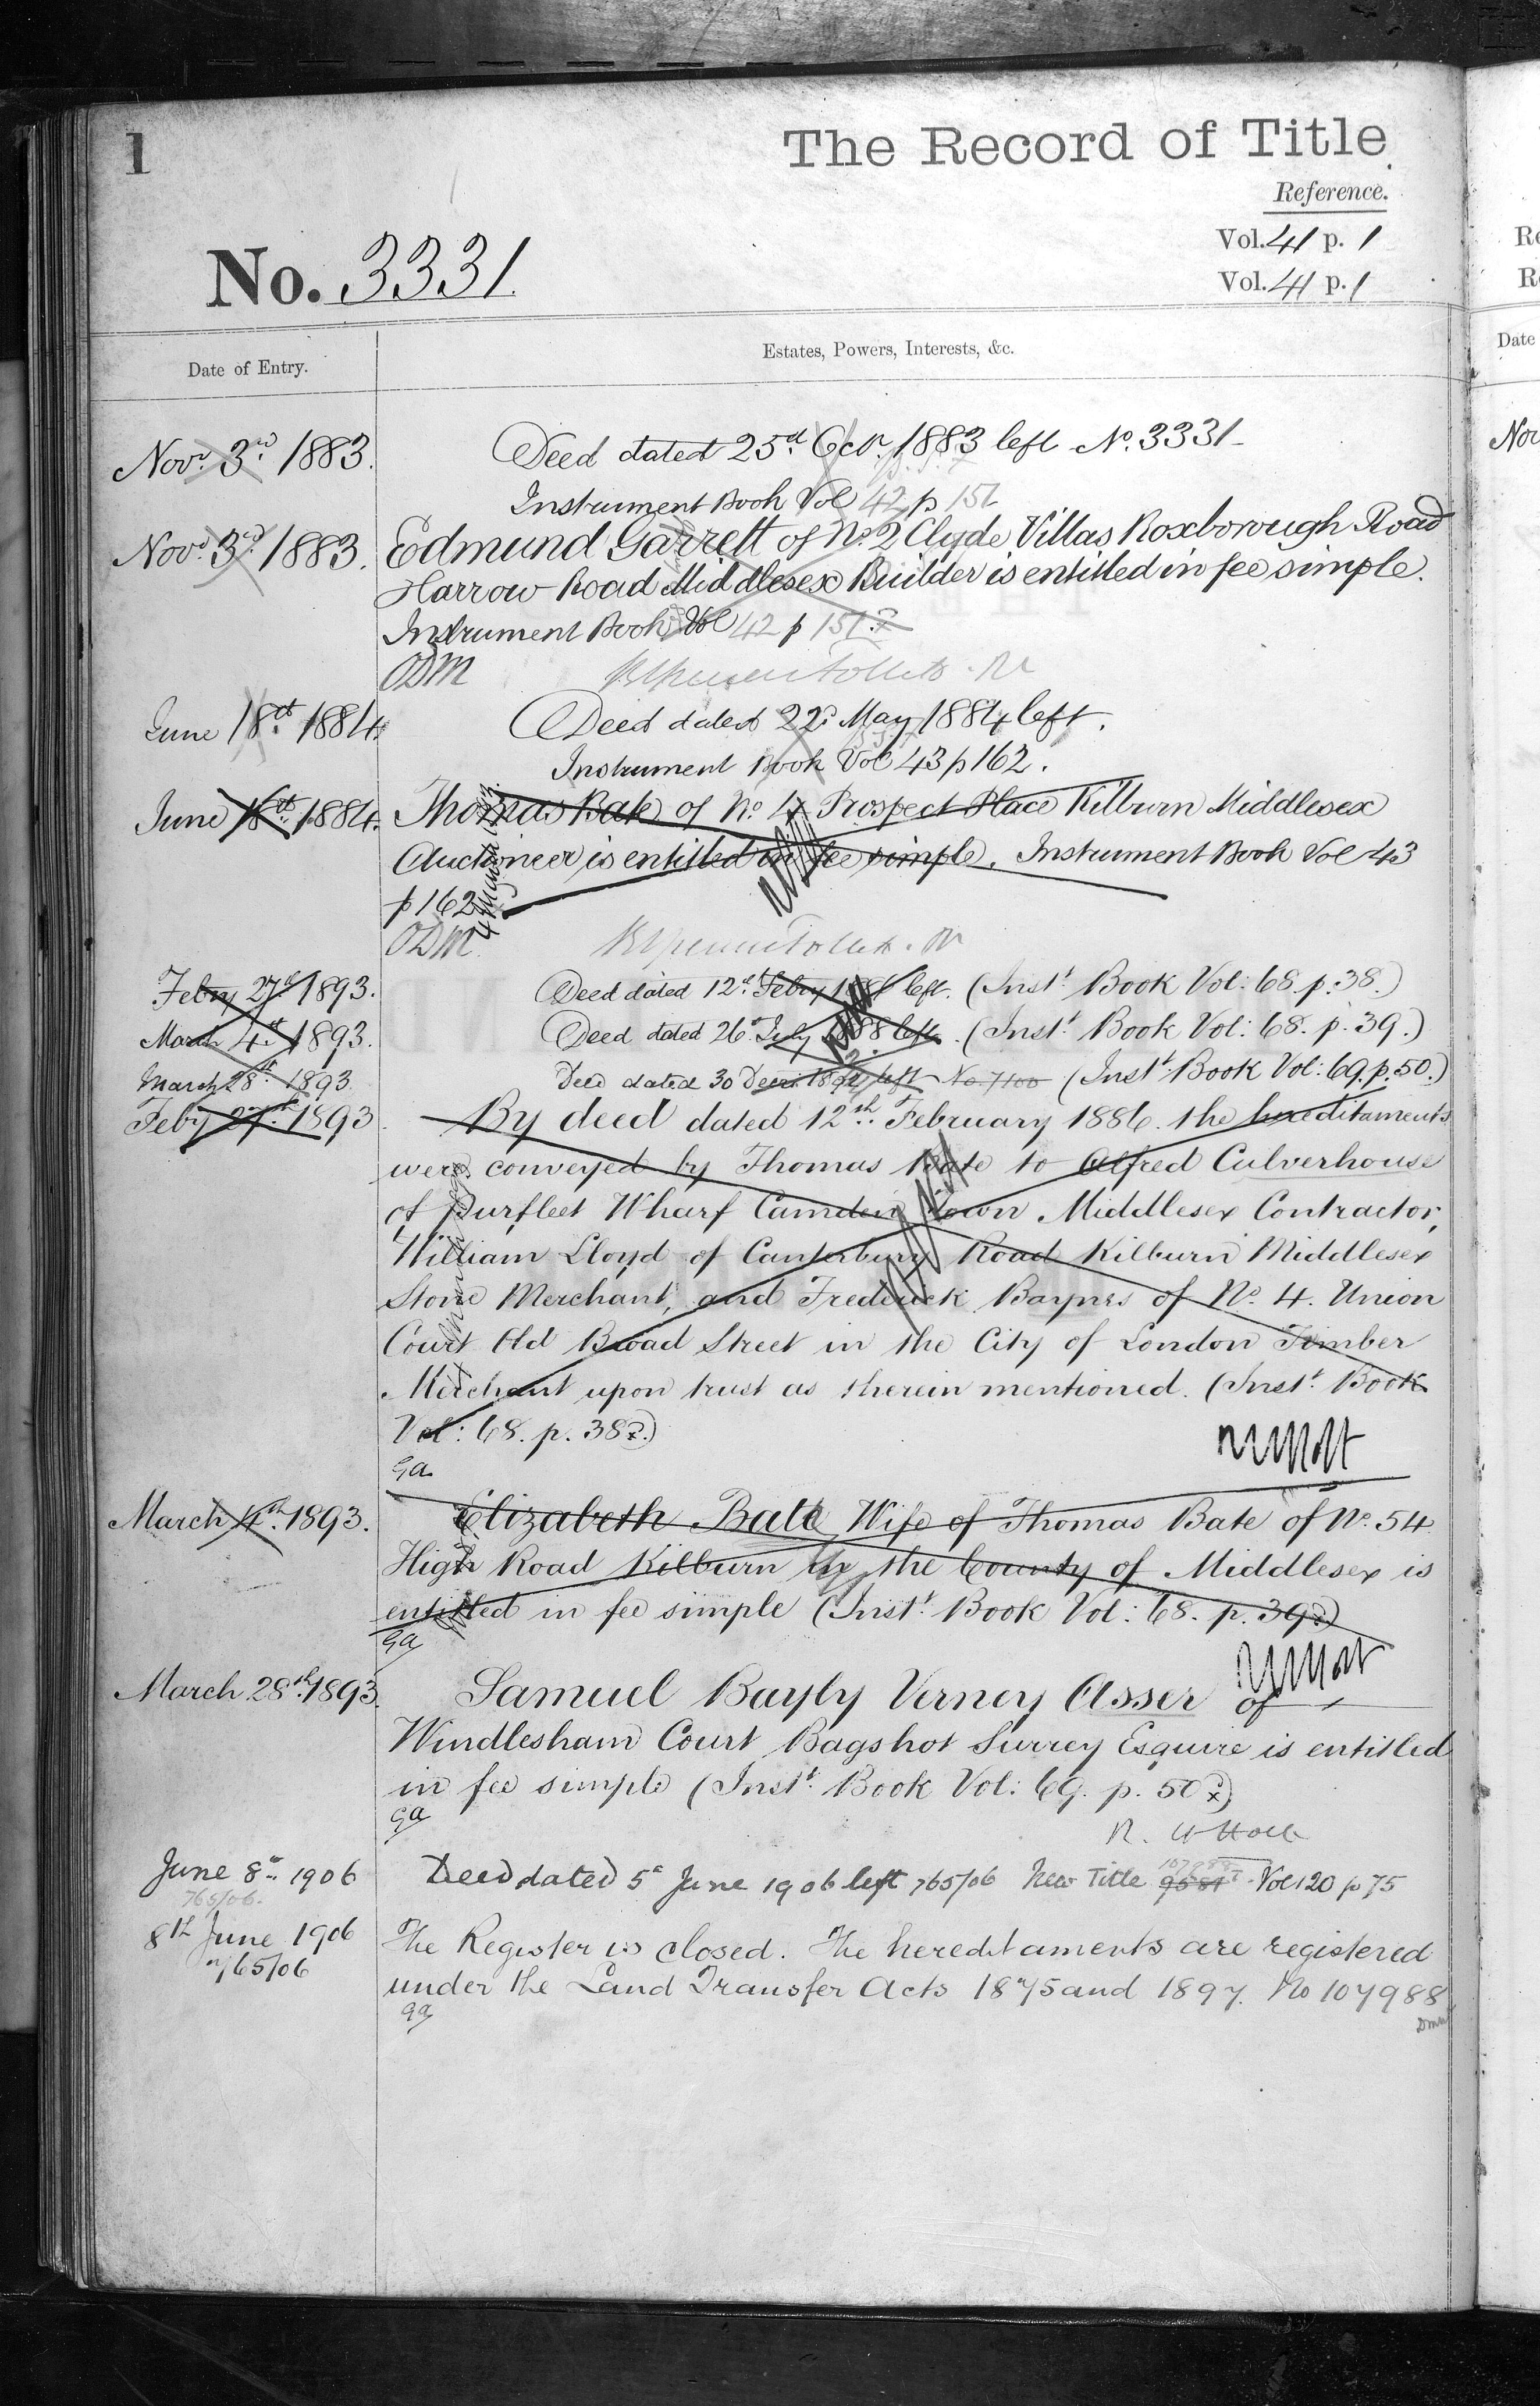 1
The Record of Title
Reference.
Vol. 41 p. 1
Vol. 41 p. 1
No. 3331.
Date of Entry.
Estates, Powers, Interests, &c.
Novr. 3rd 1883.
Deed dated 25th Octr. 1883 left No. 3331
Instrument Book Vol 42 p 151
Novr. 3rd 1883.
Edmund Garrett of No. 2 Clyde Villas Roxborough Road
Harrow Road Middlesex Builder is entitled in fee simple.
Instrument Book Vol 42 p 151
ODM
June 18th 1884.
Deed dated 22d May 1884 left.
Instrument Book Vol 43 p 162.
June 18th 1884.
Thomas Bate of No. 4 Prospect Place Kilburn Middlesex
Auctioneer is entitled in fee simple. Instrument Book Vol 43
p 162
ODM.
Feby 27th 1893.
Deed dated 12th Feby 1886 left. (Inst. Book Vol: 68. p. 38.)
March 4th 1893.
Deed dated 26th July 1888 left. (Inst. Book Vol: 68. p. 39.)
March 28th 1893.
Deed dated 30 Decr. 1892 left No. 7100 (Inst. Book Vol: 69. p. 50.)
Feby 27th 1893.
By deed dated 12th February 1886. the hereditaments
were conveyed by Thomas Bate to Alfred Culverhouse
of Purfleet Wharf Camden Town Middlesex Contractor,
William Lloyd of Canterbury Road Kilburn Middlesex
Stone Merchant, and Frederick Baynes of No. 4. Union
Court Old Broad Street in the City of London Timber
Merchant upon trust as therein mentioned. (Inst. Book
Vol: 68. p. 38.)
ga
March 4th 1893.
Elizabeth Bate Wife of Thomas Bate of No. 54
High Road Kilburn in the County of Middlesex is
entitled in fee simple (Inst. Book Vol: 68. p. 39.)
ga
March 28th 1893.
Samuel Bayly Verney Asser of
Windlesham Court Bagshot Surrey Esquire is entitled
in fee simple (Inst. Book Vol: 69. p. 50)
ga
June 8th 1906
765/06.
Deed dated 5th June 1906 left 765/06 New Title Vol 120 p 75
8th June 1906
765/06
The Register is closed. The hereditaments are registered
under the Land Transfer Acts 1875 and 1897. No 107988
ga
Date